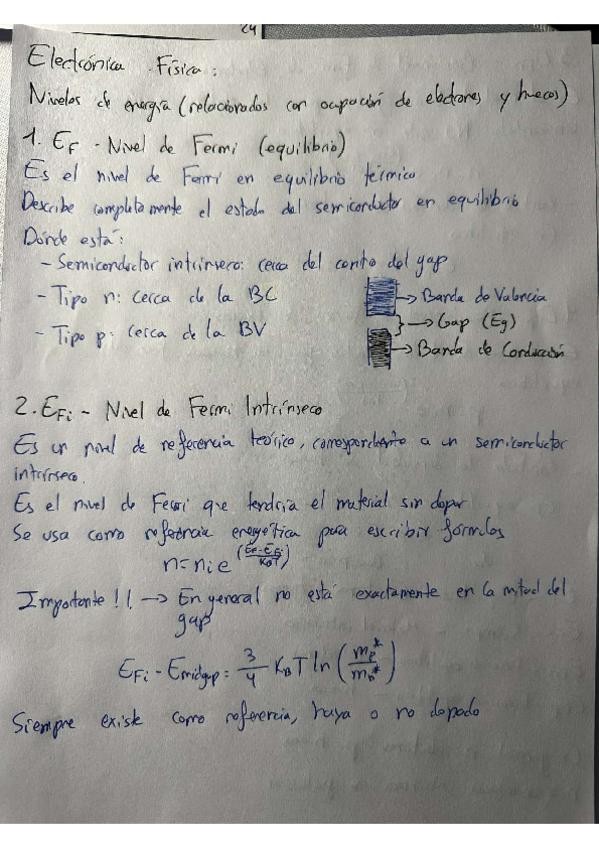 24
Electrónica Física:
Niveles de energía (relacionados con ocupación de electrones y huecos)
1. EF - Nivel de Fermi (equilibrio)
Es el nivel de Fermi en equilibrio térmico
Describe completamente el estado del semiconductor en equilibrio
Dónde está:
- Semiconductor intrínseco: cerca del centro del gap
- Tipo n: cerca de la BC
- Tipo p: cerca de la BV
→ Banda de Valencia
→ Gap (Eg)
→ Banda de Conducción
2. EFi - Nivel de Fermi Intrínseco
Es un nivel de referencia teórico, correspondiente a un semiconductor
intrínseco.
Es el nivel de Fermi que tendría el material sin dopar
Se usa como referencia energética para escribir fórmulas
n = ni e^((EF - EFi)/(KBT))
Importante!! → En general no está exactamente en la mitad del
gap
EFi - Emidgap = 3/4 KBT ln (mp*/mn*)
Siempre existe como referencia, haya o no dopado